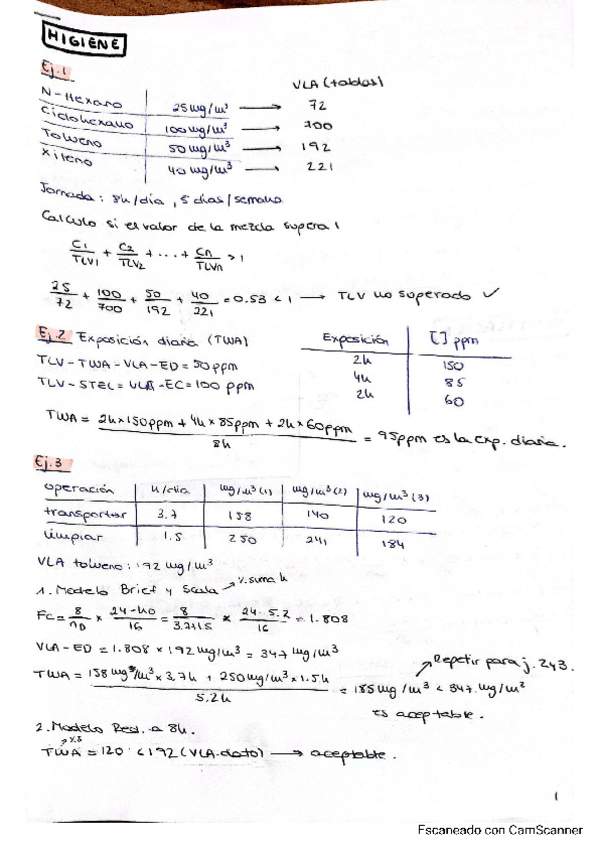 HIGIENE
Ej.1
VLA (tablas)
N-Hexano 25 mg/m³ → 72
Ciclohexano 100 mg/m³ → 700
Tolueno 50 mg/m³ → 192
Xileno 40 mg/m³ → 221
Jornada: 8h/día, 5 días/semana
Calculo si el valor de la mezcla supera 1
C1/TLV1 + C2/TLV2 + ... + Cn/TLVn > 1
25/72 + 100/700 + 50/192 + 40/221 = 0.53 < 1 → TLV no superado ✓
Ej.2 Exposición diaria (TWA)
TLV-TWA-VLA-ED = 50 ppm
TLV-STEL = VLA-EC = 100 ppm
Exposición [ ] ppm
2h 150
4h 85
2h 60
TWA = 2h×150ppm + 4h×85ppm + 2h×60ppm / 8h = 95ppm es la exp. diaria.
Ej.3
operación h/día mg/m³(1) mg/m³(2) mg/m³(3)
transportar 3.7 158 140 120
limpiar 1.5 250 241 184
VLA tolueno: 192 mg/m³
1. Modelo Brief y Scala → suma h
Fc = 8/hD × 24-hD/16 = 8/3.7+1.5 × 24-5.2/16 = 1.808
VLA-ED = 1.808 × 192 mg/m³ = 347 mg/m³
Repetir para j. 2 y 3.
TWA = 158 mg/m³ × 3.7h + 250 mg/m³ × 1.5h / 5.2h = 185 mg/m³ < 347 mg/m³
es aceptable.
2. Modelo Red. a 8h.
TWA = 120 < 192 (VLA-dato) → aceptable.
1
Escaneado con CamScanner